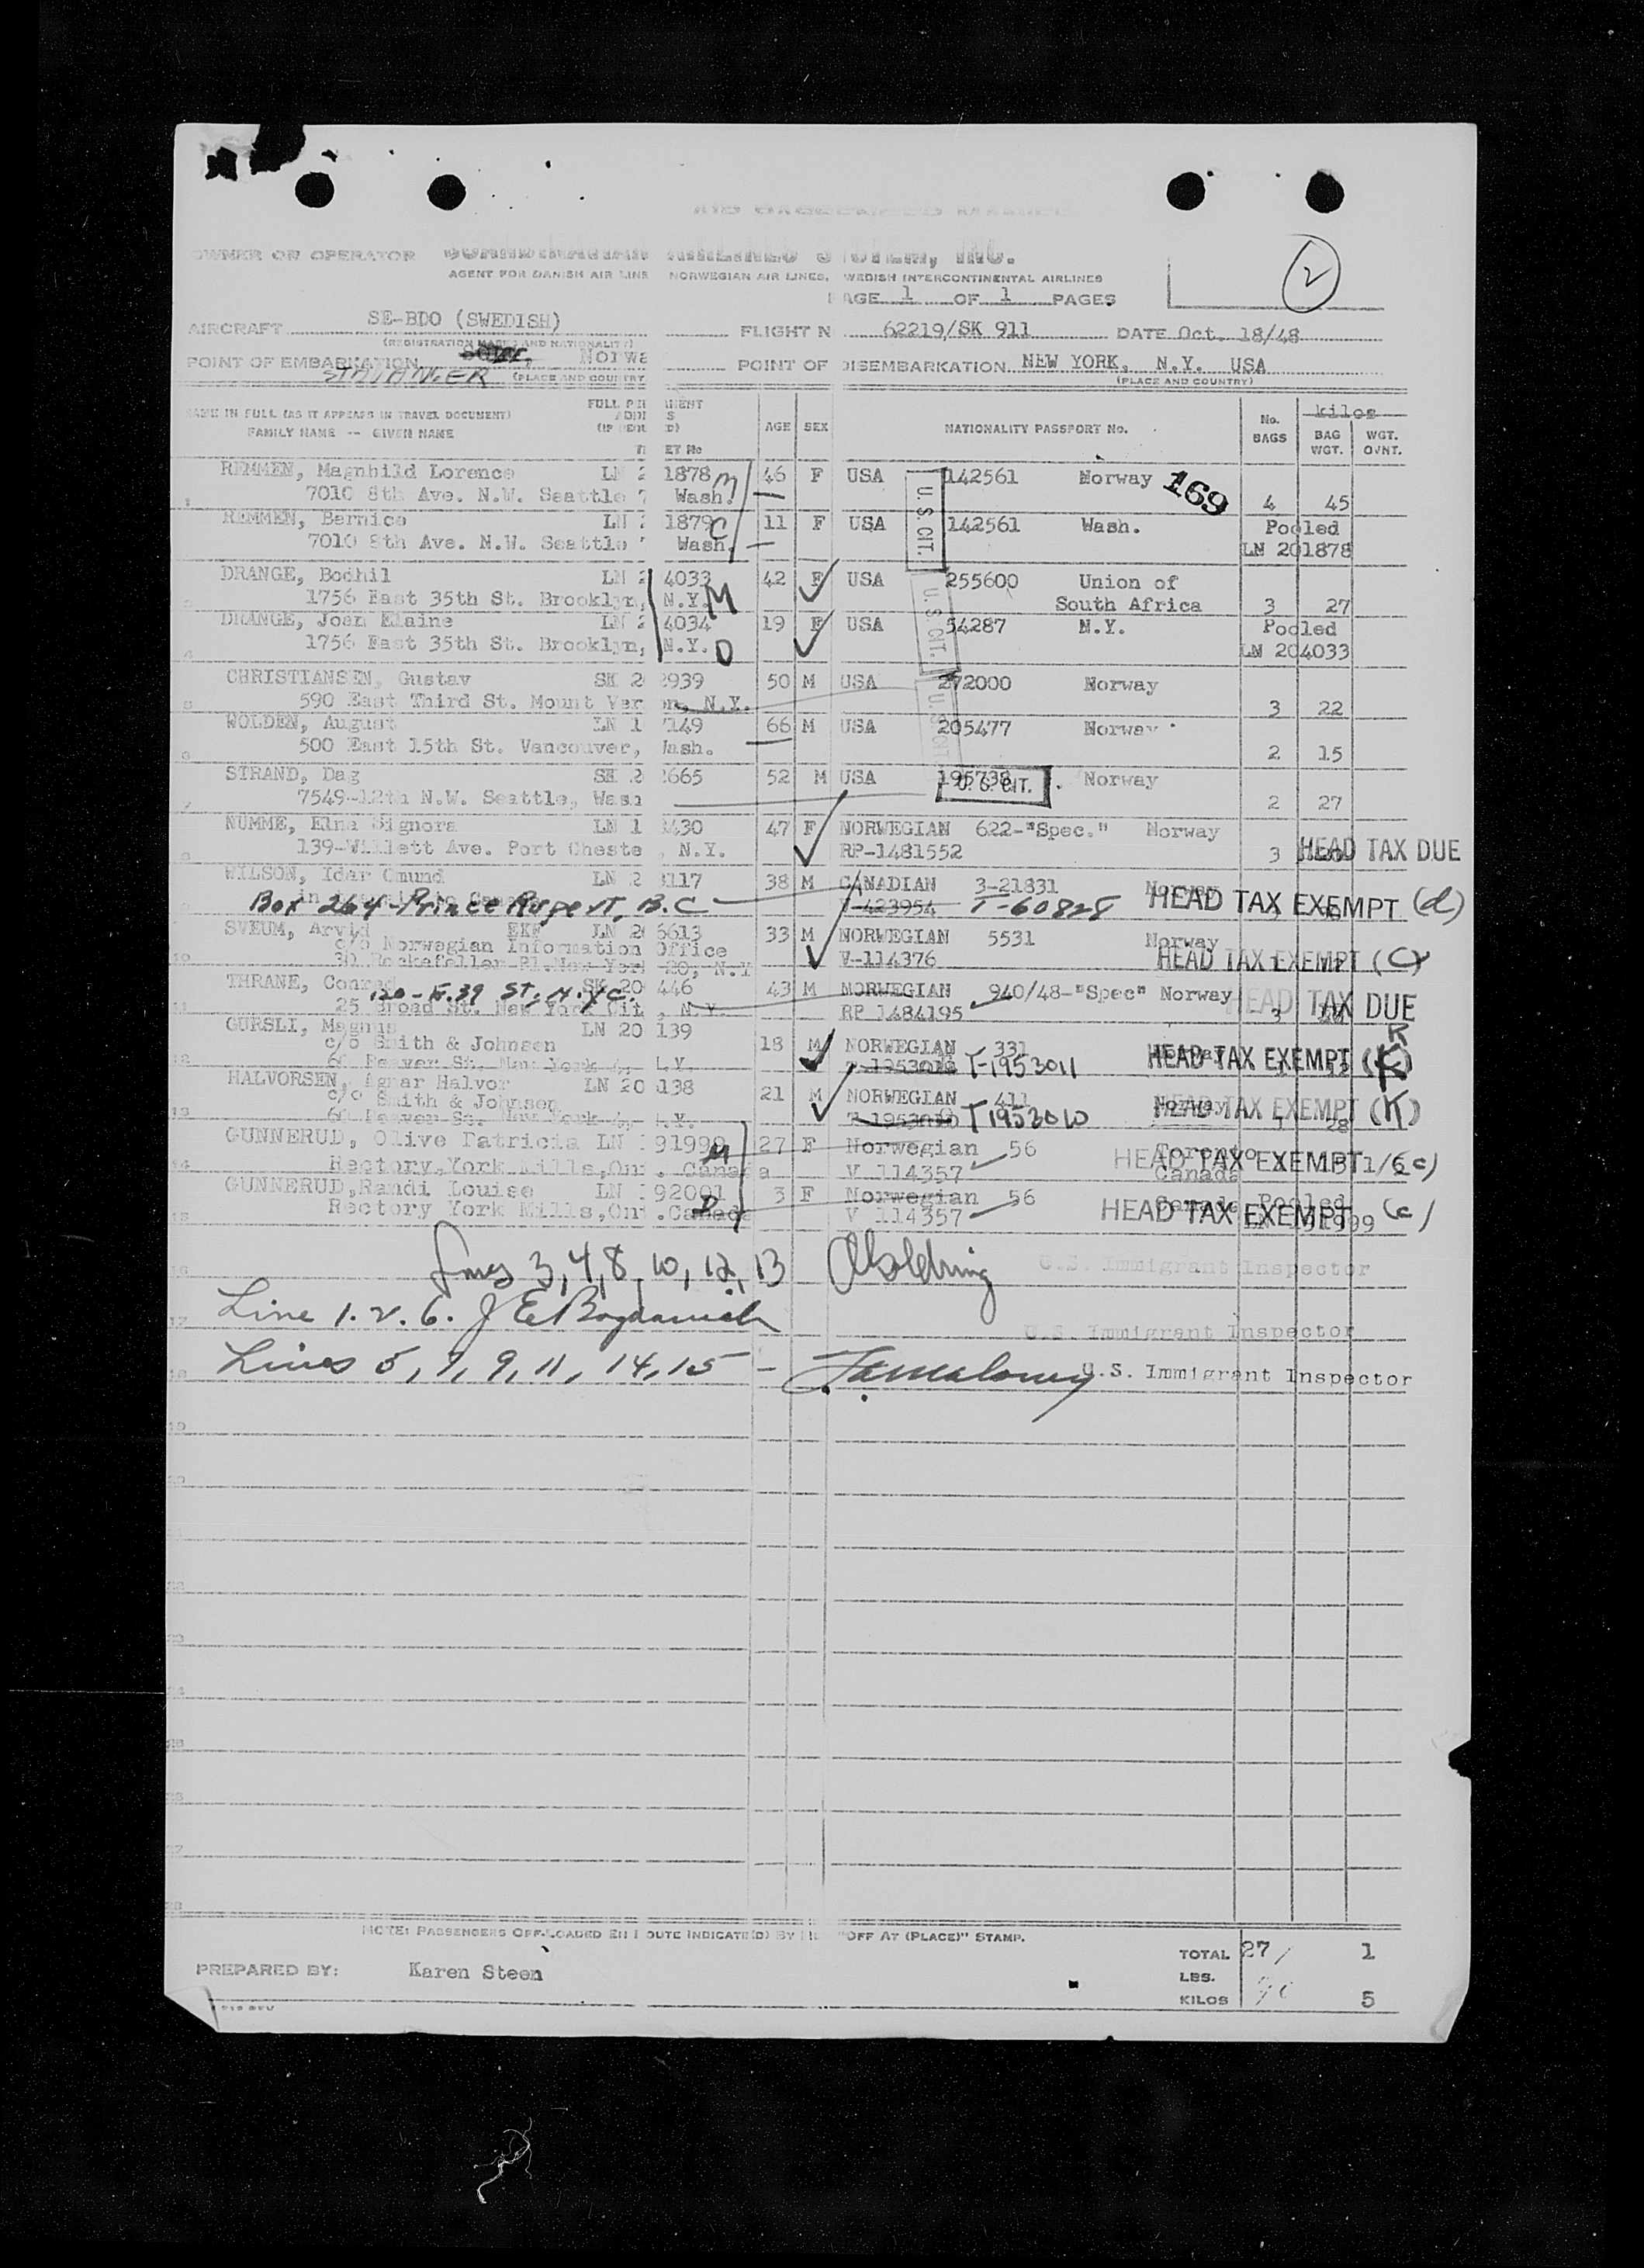 AIR PASSENGER MANIFEST
2
OWNER OR OPERATOR SCANDINAVIAN AIRLINES SYSTEM, INC.
AGENT FOR DANISH AIR LINE NORWEGIAN AIR LINES, WEDISH INTERCONTINENTAL AIRLINES
PAGE 1 OF 1 PAGES
AIRCRAFT SE-BDO (SWEDISH) FLIGHT N 62219/SK 911 DATE Oct. 18/48
(REGISTRATION MARKS AND NATIONALITY)
POINT OF EMBARKATION Norwa POINT OF DISEMBARKATION NEW YORK, N.Y. USA
STAVANGER (PLACE AND COUNTRY (PLACE AND COUNTRY)
NAME IN FULL (AS IT APPEARS IN TRAVEL DOCUMENT)
FAMILY NAME -- GIVEN NAME AGE SEX NATIONALITY PASSPORT No. No. BAGS kilos BAG WGT. WGT. OVNT.
REMMEN, Magnhild Lorence LN 2 1878 M 46 F USA 142561 Norway 169
1 7010 8th Ave. N.W. Seattle 7 Wash. 4 45
REMMEN, Bernice LN 1879 C 11 F USA U.S.CIT. 142561 Wash. Pooled
7010 8th Ave. N.W. Seattle Wash. LN 201878
DRANGE, Bodhil LN 2 4033 42 F USA 255600 Union of
1756 East 35th St. Brooklyn, N.Y. M South Africa 3 27
DRANGE, Joan Elaine LN 2 4034 19 F USA U.S.CIT. 54287 N.Y. Pooled
4 1756 East 35th St. Brooklyn, N.Y. D LN 204033
CHRISTIANSEN, Gustav SK 2 2939 50 M USA 272000 Norway
590 East Third St. Mount Ver on, N.Y. 3 22
WOLDEN, August LN 1 7149 66 M USA 205477 Norway
500 East 15th St. Vancouver, Wash. 2 15
STRAND, Dag SK 2 2665 52 M USA 195738 U.S.CIT. Norway
7 7549-12th N.W. Seattle, Wash 2 27
NUMME, Elna Signora LN 1 430 47 F NORWEGIAN 622-"Spec." Norway
139-Willett Ave. Port Cheste , N.Y. RP-1481552 3 HEAD TAX DUE
WILSON, Idar Omund LN 2 117 38 M CANADIAN 3-21831 Norway
Box 264-Prince Rupert, B.C V-423954 T-60828 HEAD TAX EXEMPT (d)
SVEUM, Arvid EKF LN 20 6613 33 M NORWEGIAN 5531 Norway
c/o Norwegian Information Office
10 30 Rockefeller Pl.New York 20, N.Y V-114376 HEAD TAX EXEMPT (C)
THRANE, Conrad SK 20 446 43 M NORWEGIAN 940/48-"Spec" Norway
120-E.39 ST. N.Y.C.
11 25 Broad St. New York Cit , N.Y. RP 1484195 3 HEAD TAX DUE
GURSLI, Magnus LN 20 139 18 M NORWEGIAN 331 Norway R
c/o Smith & Johnsen
12 60 Beaver St. New York 4, N.Y. T-1953011 HEAD TAX EXEMPT (K)
HALVORSEN, Agnar Halvor LN 20 138 21 M NORWEGIAN 411 Norway
c/o Smith & Johnsen
13 60 Beaver St. New York 4, N.Y. T1953010 HEAD TAX EXEMPT (K) 28
GUNNERUD, Olive Patricia LN 191999 M 27 F Norwegian 56 Toronto
14 Rectory,York Mills,Ont. Canada V 114357 Canada HEAD TAX EXEMPT (c)
GUNNERUD,Randi Louise LN 192001 D 3 F Norwegian 56 Canada Pooled
15 Rectory York Mills,Ont.Canada V 114357 HEAD TAX EXEMPT (c) 191999
16 Lines 3,4,8,10,12,13 U.S. Immigrant Inspector
17 Line 1.2.6. J E Bogdanich U.S. Immigrant Inspector
18 Lines 5,7,9,11,14,15 - U.S. Immigrant Inspector
19
20
22
23
24
25
26
27
28
NOTE: PASSENGERS OFF-LOADED EN ROUTE INDICATE(D) BY "OFF AT (PLACE)" STAMP.
PREPARED BY: Karen Steen
TOTAL 27 1
LBS.
KILOS 5